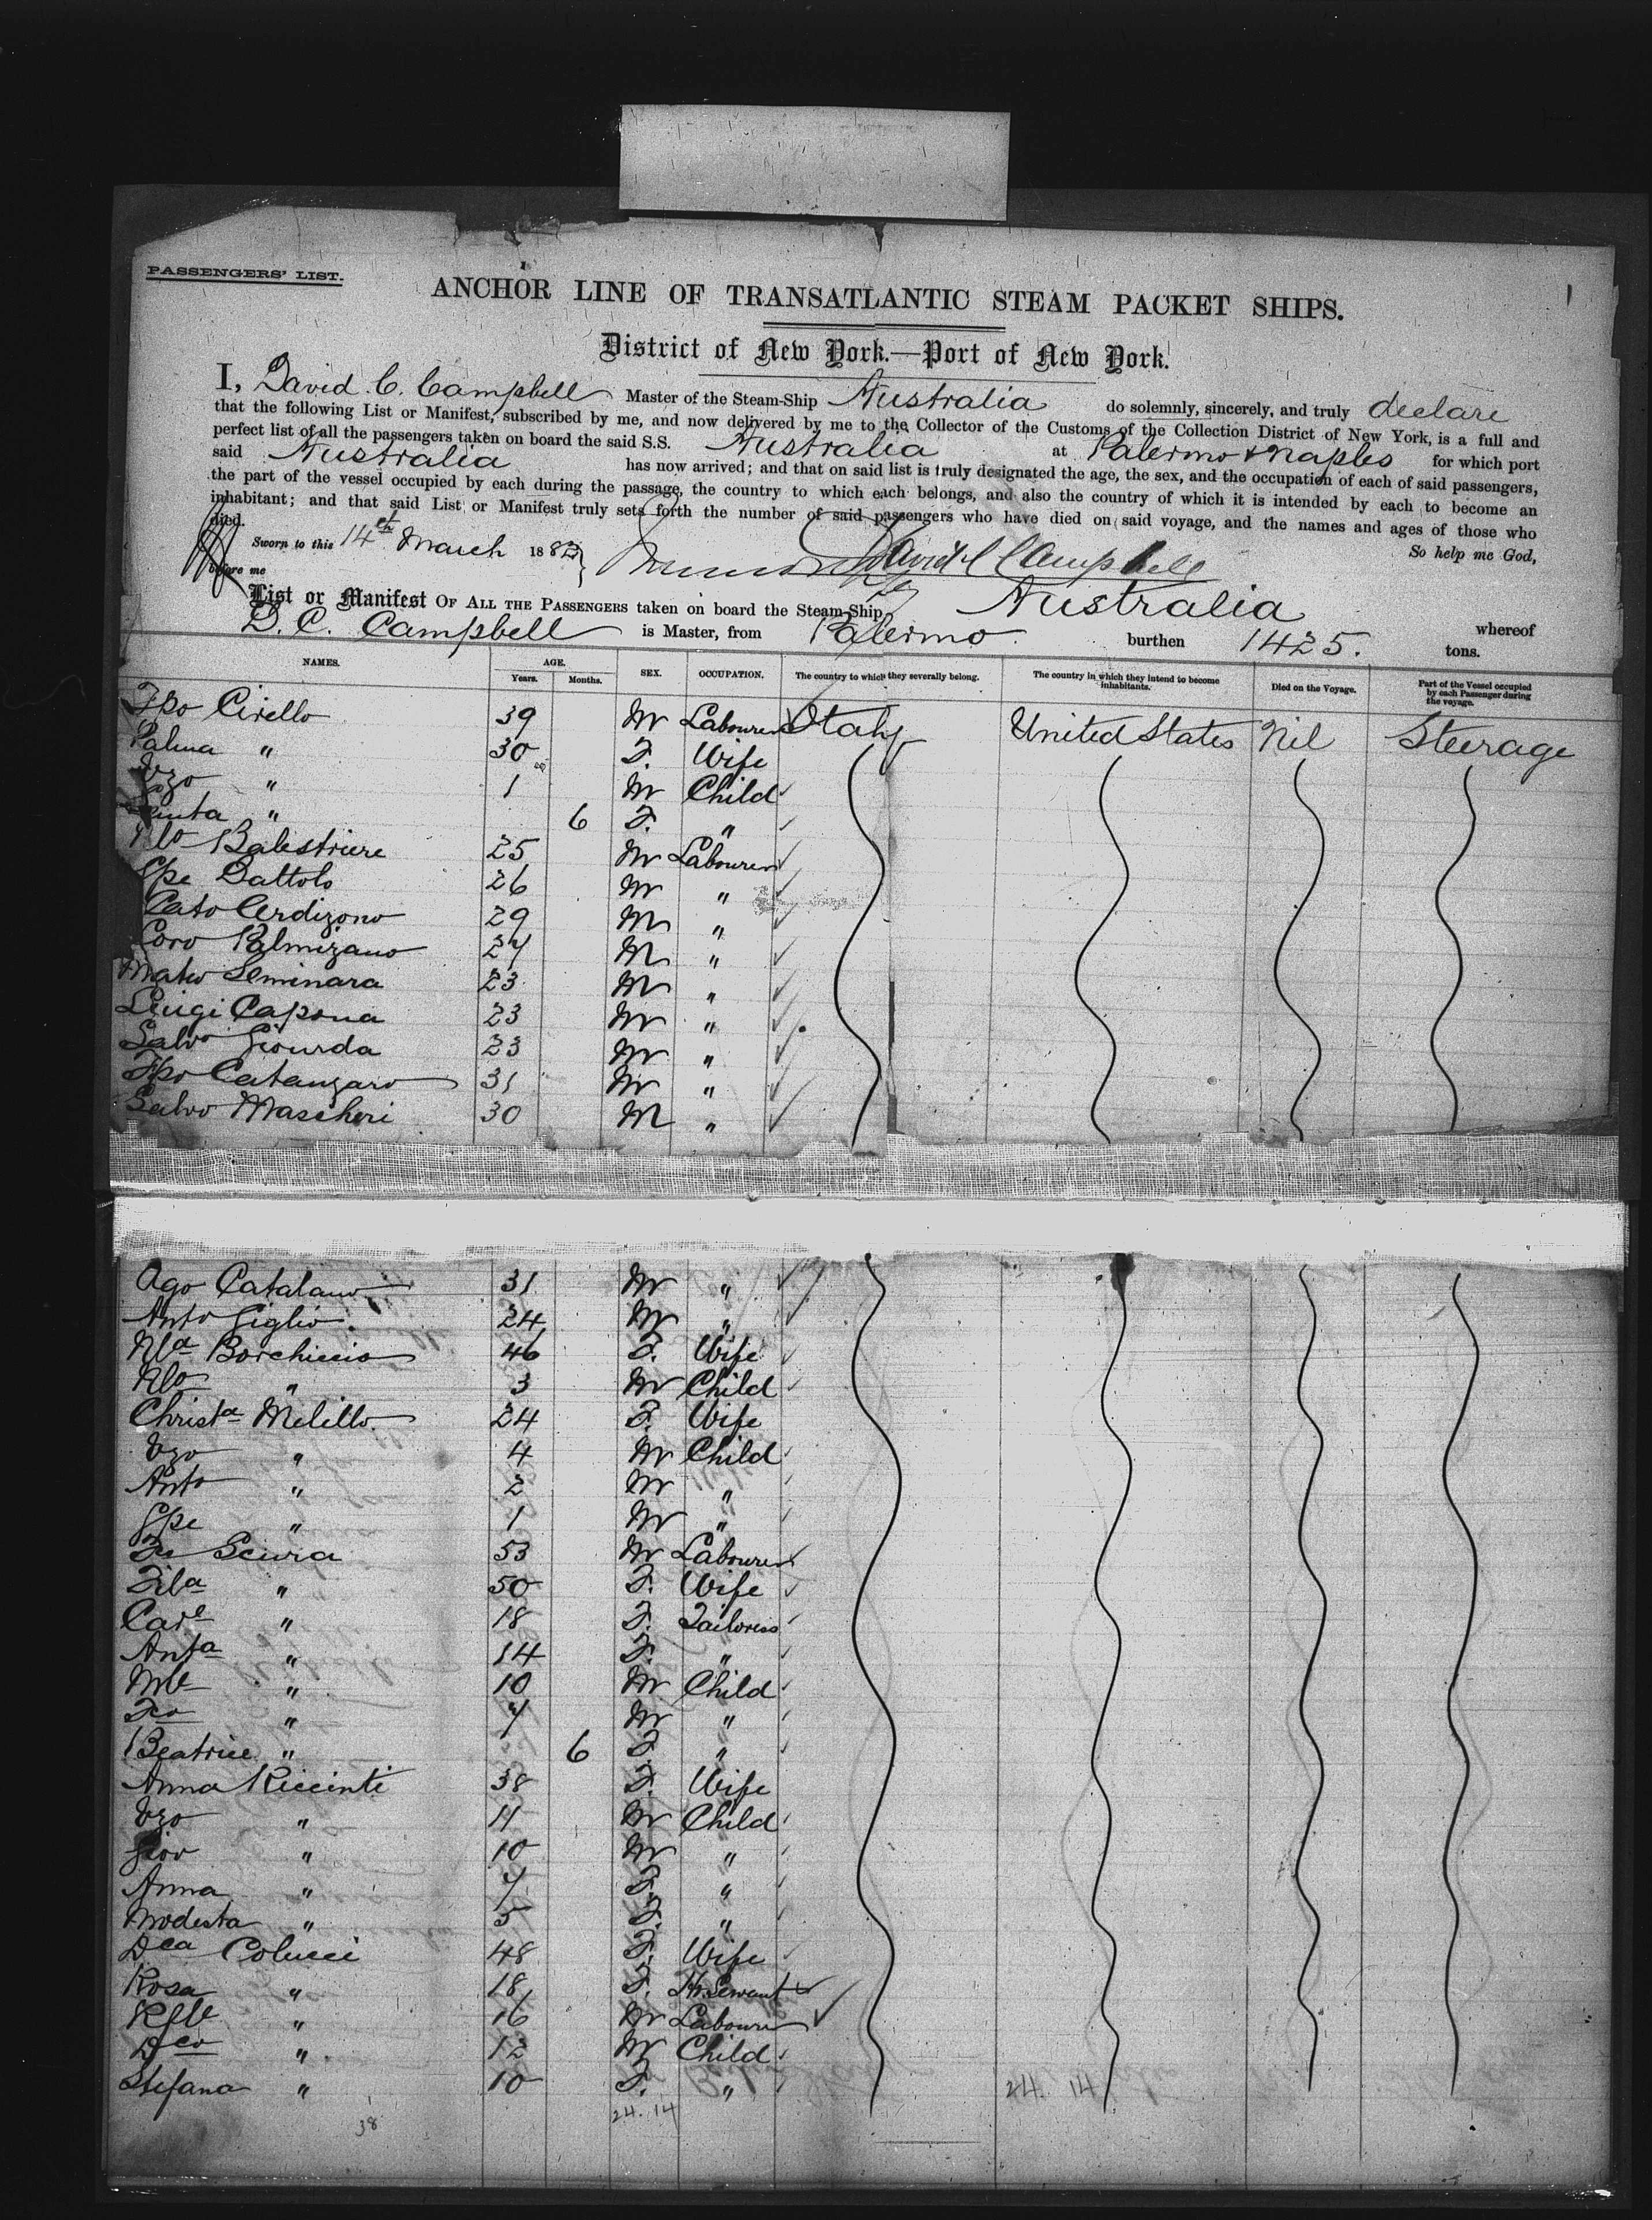 PASSENGERS' LIST.
ANCHOR LINE OF TRANSATLANTIC STEAM PACKET SHIPS.
District of New York.—Port of New York.
I, David C. Campbell Master of the Steam-Ship Australia do solemnly, sincerely, and truly declare
that the following List or Manifest, subscribed by me, and now delivered by me to the Collector of the Customs of the Collection District of New York, is a full and
perfect list of all the passengers taken on board the said S.S. Australia at Palermo & Naples for which port
said Australia has now arrived; and that on said list is truly designated the age, the sex, and the occupation of each of said passengers,
the part of the vessel occupied by each during the passage, the country to which each belongs, and also the country of which it is intended by each to become an
inhabitant; and that said List or Manifest truly sets forth the number of said passengers who have died on said voyage, and the names and ages of those who
died.
So help me God,
Sworn to this 14th March 1882
before me
David C Campbell
List or Manifest OF ALL THE PASSENGERS taken on board the Steam-Ship Australia whereof
D. C. Campbell is Master, from Palermo burthen 1425. tons.
NAMES. AGE. SEX. OCCUPATION. The country to which they severally belong. The country in which they intend to become inhabitants. Died on the Voyage. Part of the Vessel occupied by each Passenger during the voyage.
Years. Months.
Fco Cirello 39 M Labourer Italy United States Nil Steerage
Palma " 30 F. Wife
Vzo " 1 M Child
" 6 F. "
Balestriere 25 M Labourer
Gpe Dattolo 26 M "
Cato Ardizono 29 M "
Coro Palmizano 27 M "
Mateo Seminara 23 M "
Luigi Capona 23 M "
Salvo Giourda 23 M "
Fco Catanzaro 31 M "
Salvo Mascheri 30 M "
Ago Catalano 31 M "
Anto Giglio 24 M "
Nla Borchiccio 46 F. Wife
Nlo " 3 M Child
Christa Melillo 24 F. Wife
Vzo " 4 M Child
Anto " 2 M "
Gpe " 1 M "
Fo Sciora 53 M Labourer
Fila " 50 F. Wife
Care " 18 F. Tailoress
Anta " 14 F. "
Mle " 10 M Child
Fco " 7 M "
Beatrice " 6 F. "
Anna Riccinti 38 F. Wife
Vzo " 11 M Child
Giov " 10 M "
Anna " 7 F. "
Modesta " 5 F. "
Dca Colucci 48 F. Wife
Rosa " 18 F. H. Servant
Rffle " 16 M Labourer
Dco " 12 M Child
Stefana " 10 F. "
24. 14
38 24. 14